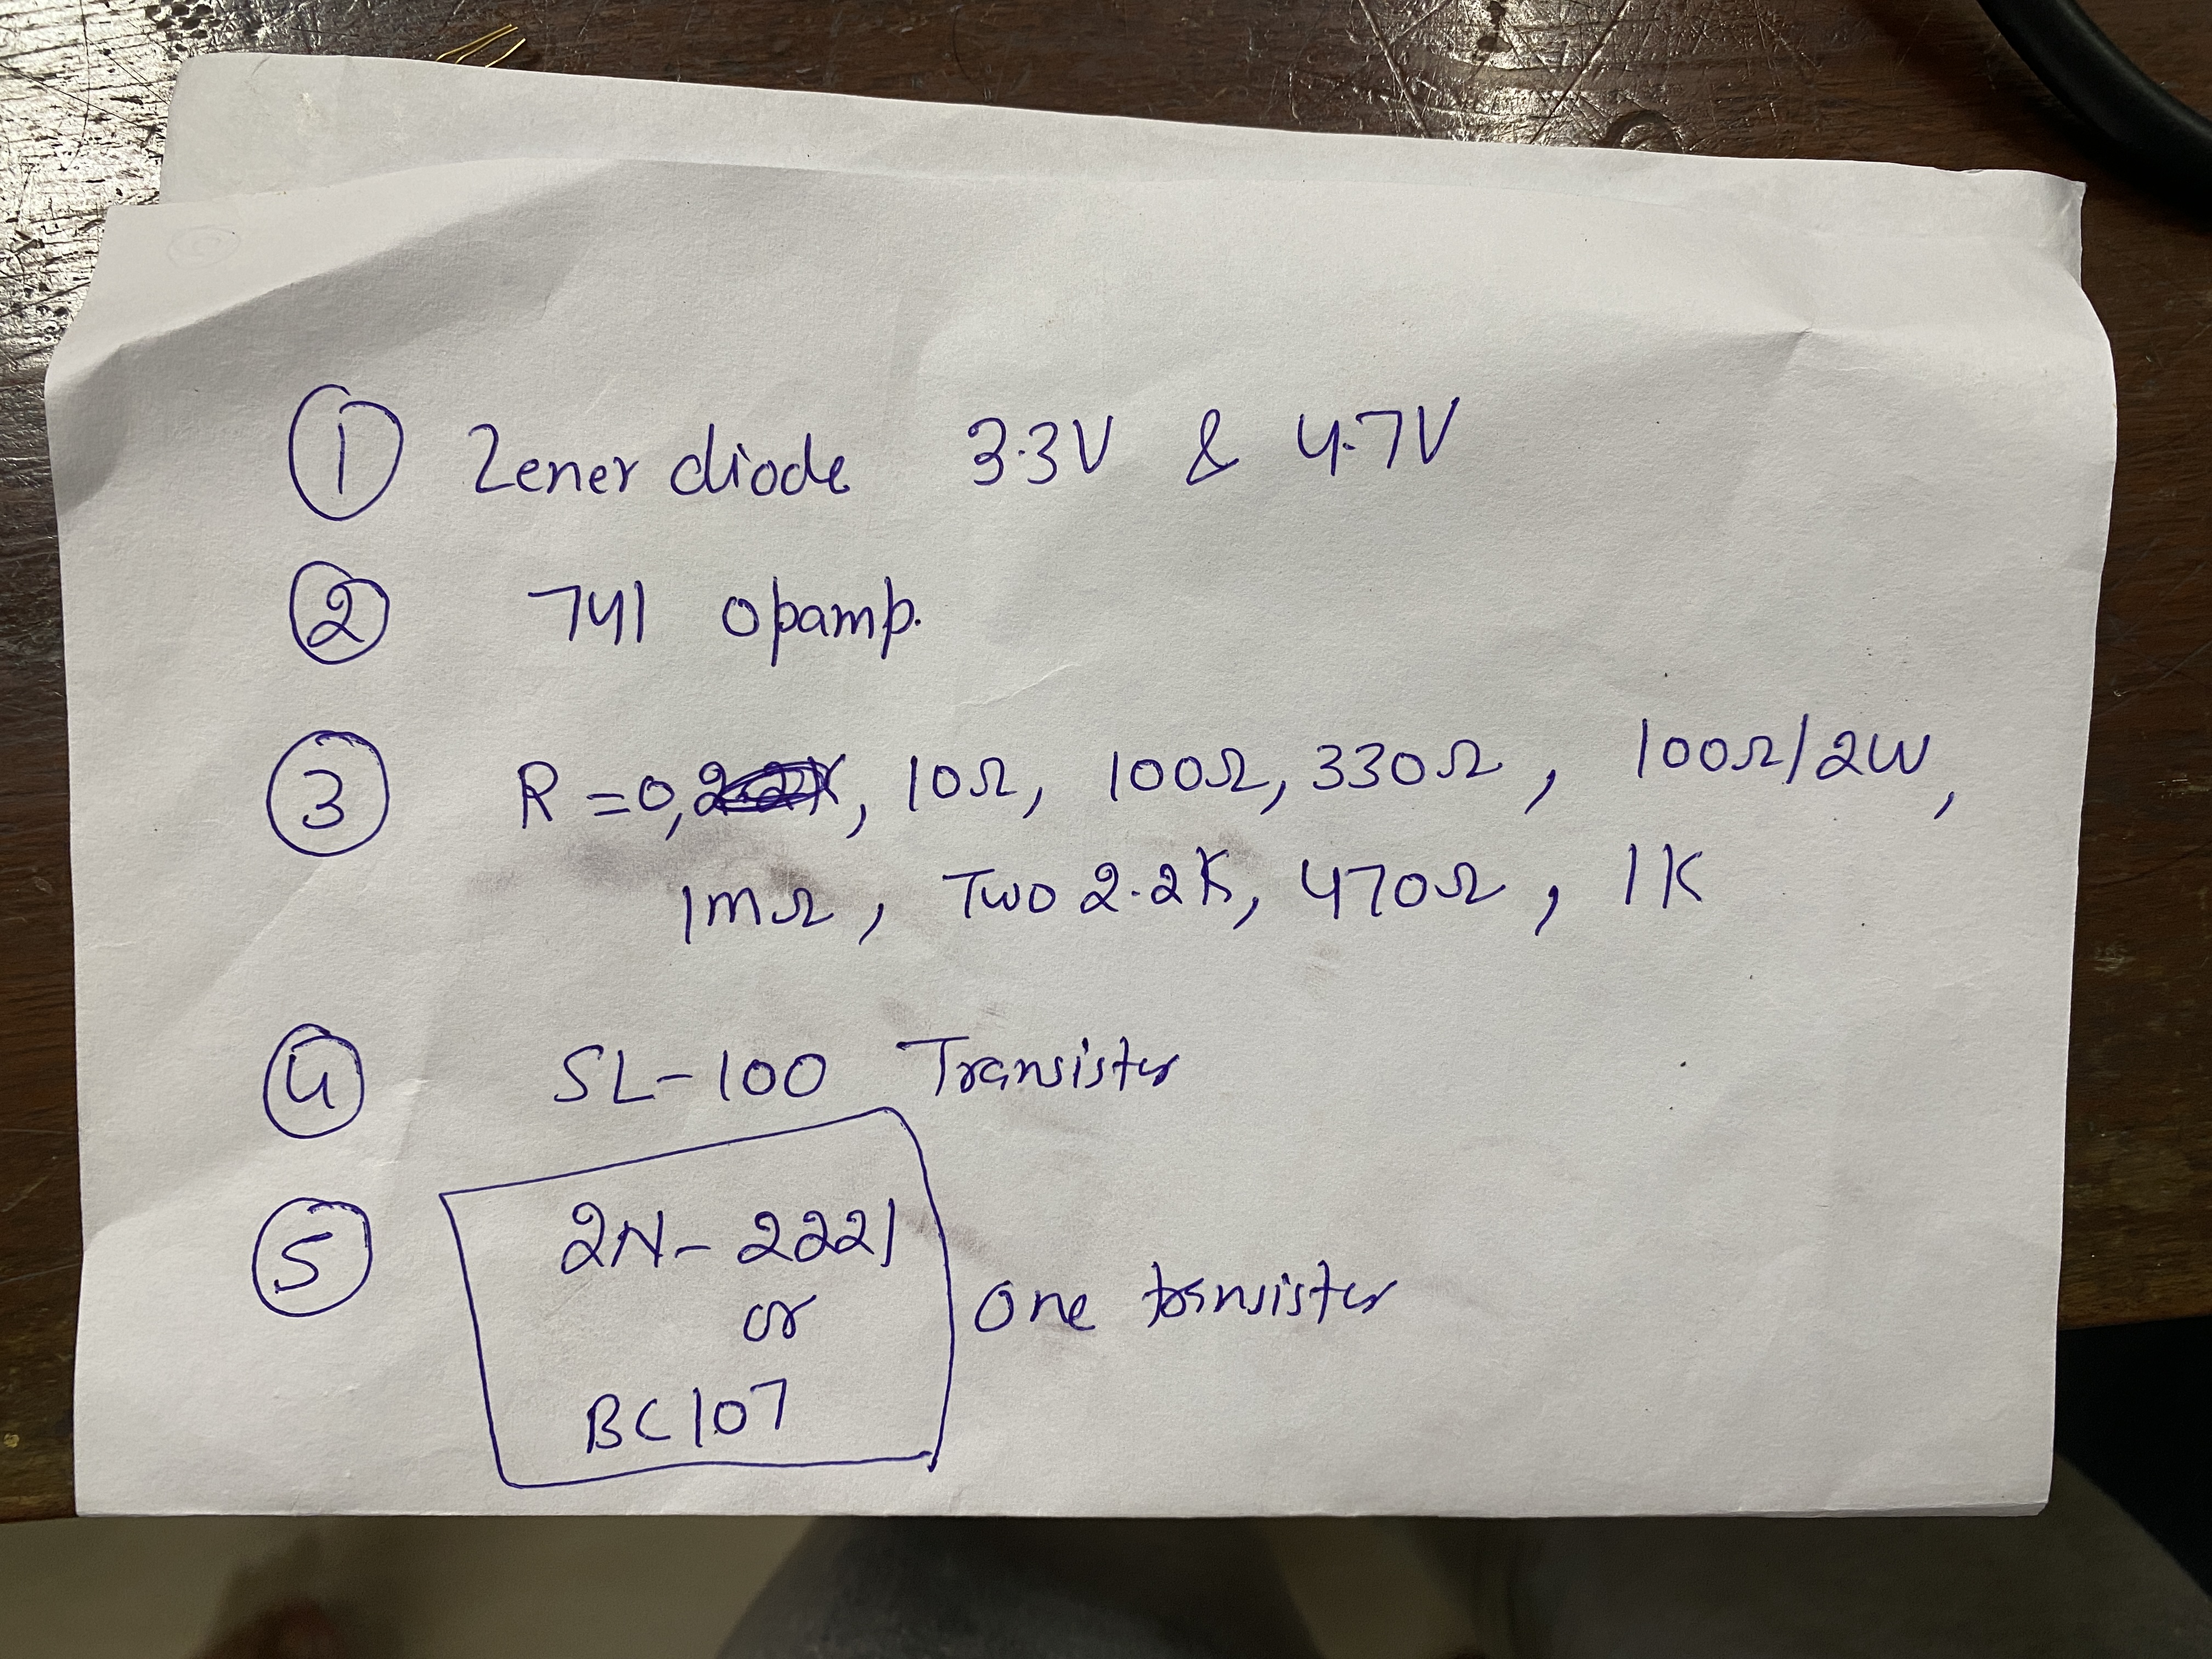 ① Zener diode 3.3V & 4.7V
② 741 opamp.
③ R = 0, 10Ω, 100Ω, 330Ω, 100Ω/2W,
1mΩ, Two 2.2K, 470Ω, 1K
④ SL-100 Transister
⑤ 2N-2221
or
BC107
One transister